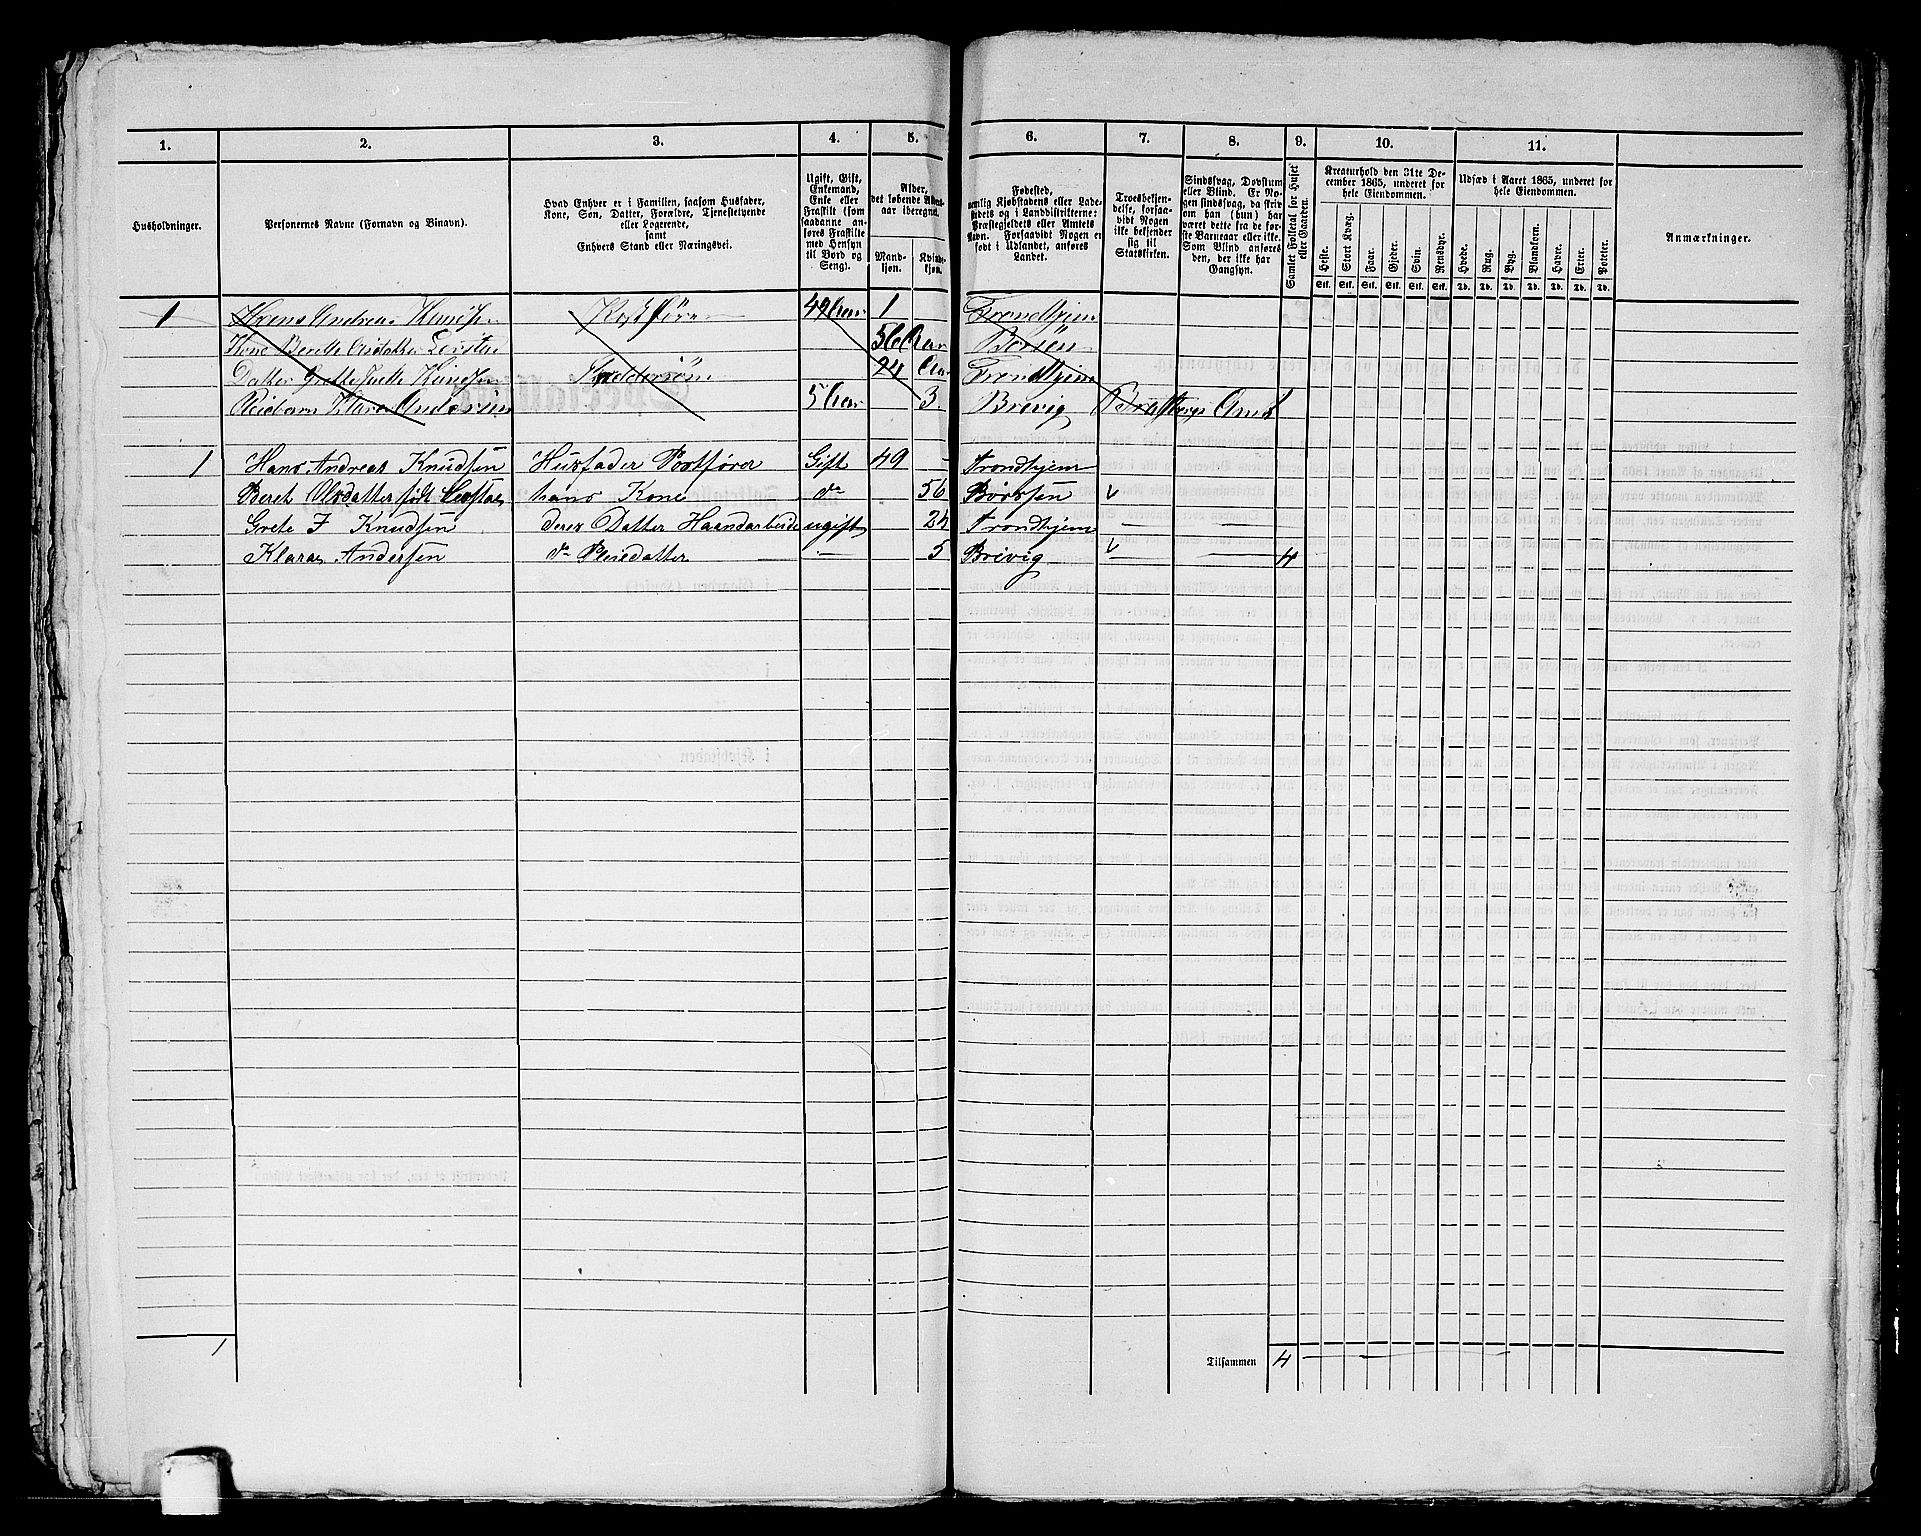 1. 2. 3. 4. 5. 6. 7. 8. 9. 10. 11.
Husholdninger.
Personernes Navne (Fornavn og Binavn).
Hvad Enhver er i Familien, saasom Husfader,
Kone, Søn, Datter, Forældre, Tjenestetyende
eller Logerende,
samt
Enhvers Stand eller Næringsvei.
Ugift, Gift,
Enkemand,
Enke eller
Fraskilt (som
saadanne an-
føres Fraskilte
med Hensyn
til Bord og
Seng).
Alder,
det løbende Alders-
aar iberegnet.
Mand-
kjøn.
Kvinde-
kjøn.
Fødested,
nemlig Kjøbstadens eller Lade-
stedets og i Landdistrikterne:
Præstegjeldets eller Amtets
Navn. Forsaavidt Nogen er
født i Udlandet, anføres
Landet.
Troesbekjen-
delse, forsaa-
vidt Nogen
ikke bekjender
sig til
Statskirken.
Sindssvag, Døvstum
eller Blind. Er No-
gen sindssvag, da skriv
om han (hun) har
været dette fra de før-
ste Barneaar eller ikke.
Som Blind anføres
den, der ikke har
Gangsyn.
Samlet Folketal for Huset
eller Gaarden.
Kreaturhold den 31te De-
cember 1865, underet for
hele Eiendommen.
Heste. Stort Kvæg. Faar. Gjeder. Svin. Rensdyr.
Stk. Stk. Stk. Stk. Stk. Stk.
Udsæd i Aaret 1865, underet for
hele Eiendommen.
Hvede. Rug. Byg. Blandkorn. Havre. Erter. Poteter.
Td. Td. Td. Td. Td. Td. Td.
Anmærkninger.
1 Andreas 49 Aar 1 Trondhjem
Kone 56 Aar
Datter 24 Aar Trondhjem
Pleibarn Klara Andersen 5 Aar 3. Brevig Amt
1 Hans Andreas Knudsen Husfader Postfører Gift 49 — Trondhjem
Beret Olsdatter født hans Kone do 56 Børsen
Grete F Knudsen deres Datter Haandarbeide ugift 24 Trondhjem — —
Klara Andersen do Pleiedatter — 5 Brevig — 4
1
Tilsammen 4